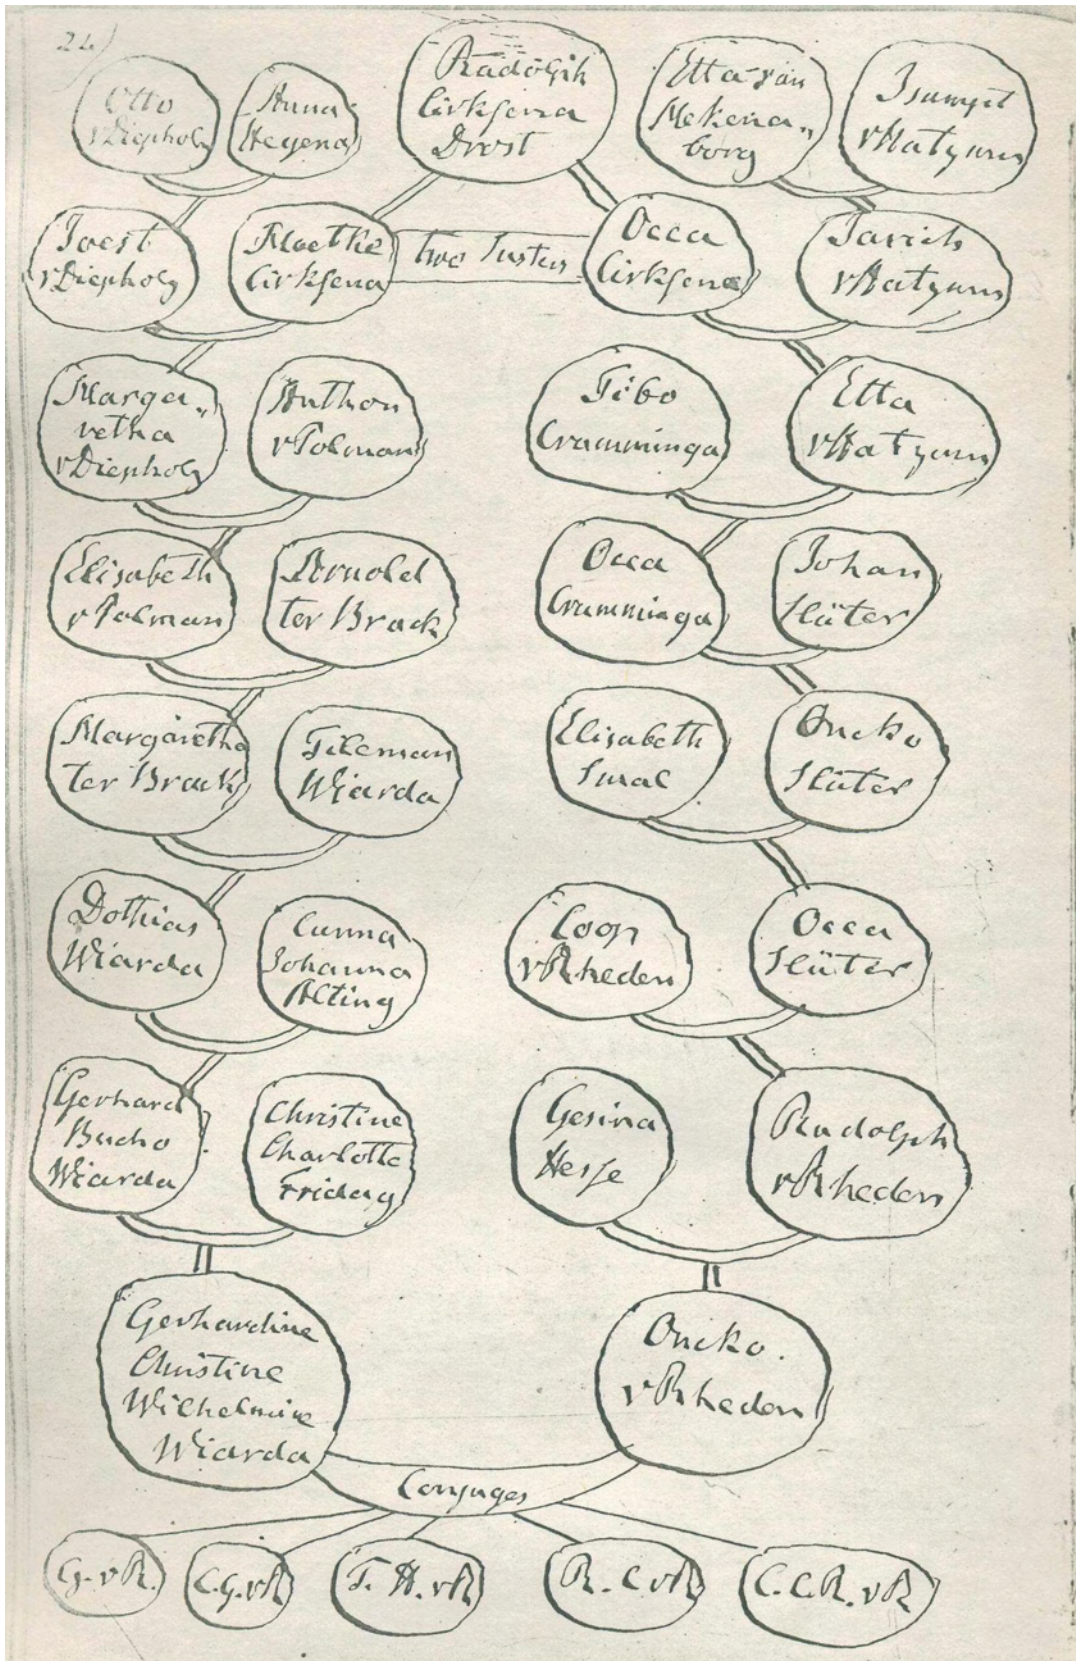 24)
Otto
v Diepholz
Anna
Heyena
Rudolph
Cirksena
Drost
Etta van
Mekena„
borg
v Hatzum
Joest
v Diepholz
Cirksena
two Susters
Occa
Cirksena
v Hatzum
Marga„
retha
v Diepholz
Anthon
v Polman
Tibo
Cramminga
Etta
v Hatzum
Elisabeth
v Polman
Arnold
ter Brack
Occa
Cramminga
Johan
Slüter
Margaretha
ter Brack
Tileman
Wiarda
Elisabeth
Oncko
Slüter
Dothias
Wiarda
Cunna
Johanna
Alting
Coop
v Rheden
Occa
Slüter
Gerhard
Bucho
Wiarda
Christine
Charlotte
Fridag
Gesina
Hesse
Rudolph
v Rheden
Gerhardine
Christine
Wilhelmine
Wiarda
Oncko.
v Rheden
Conjuges
G. v R.
C. G. v R
T. H. v R
R. C v R
C. C. R. v R